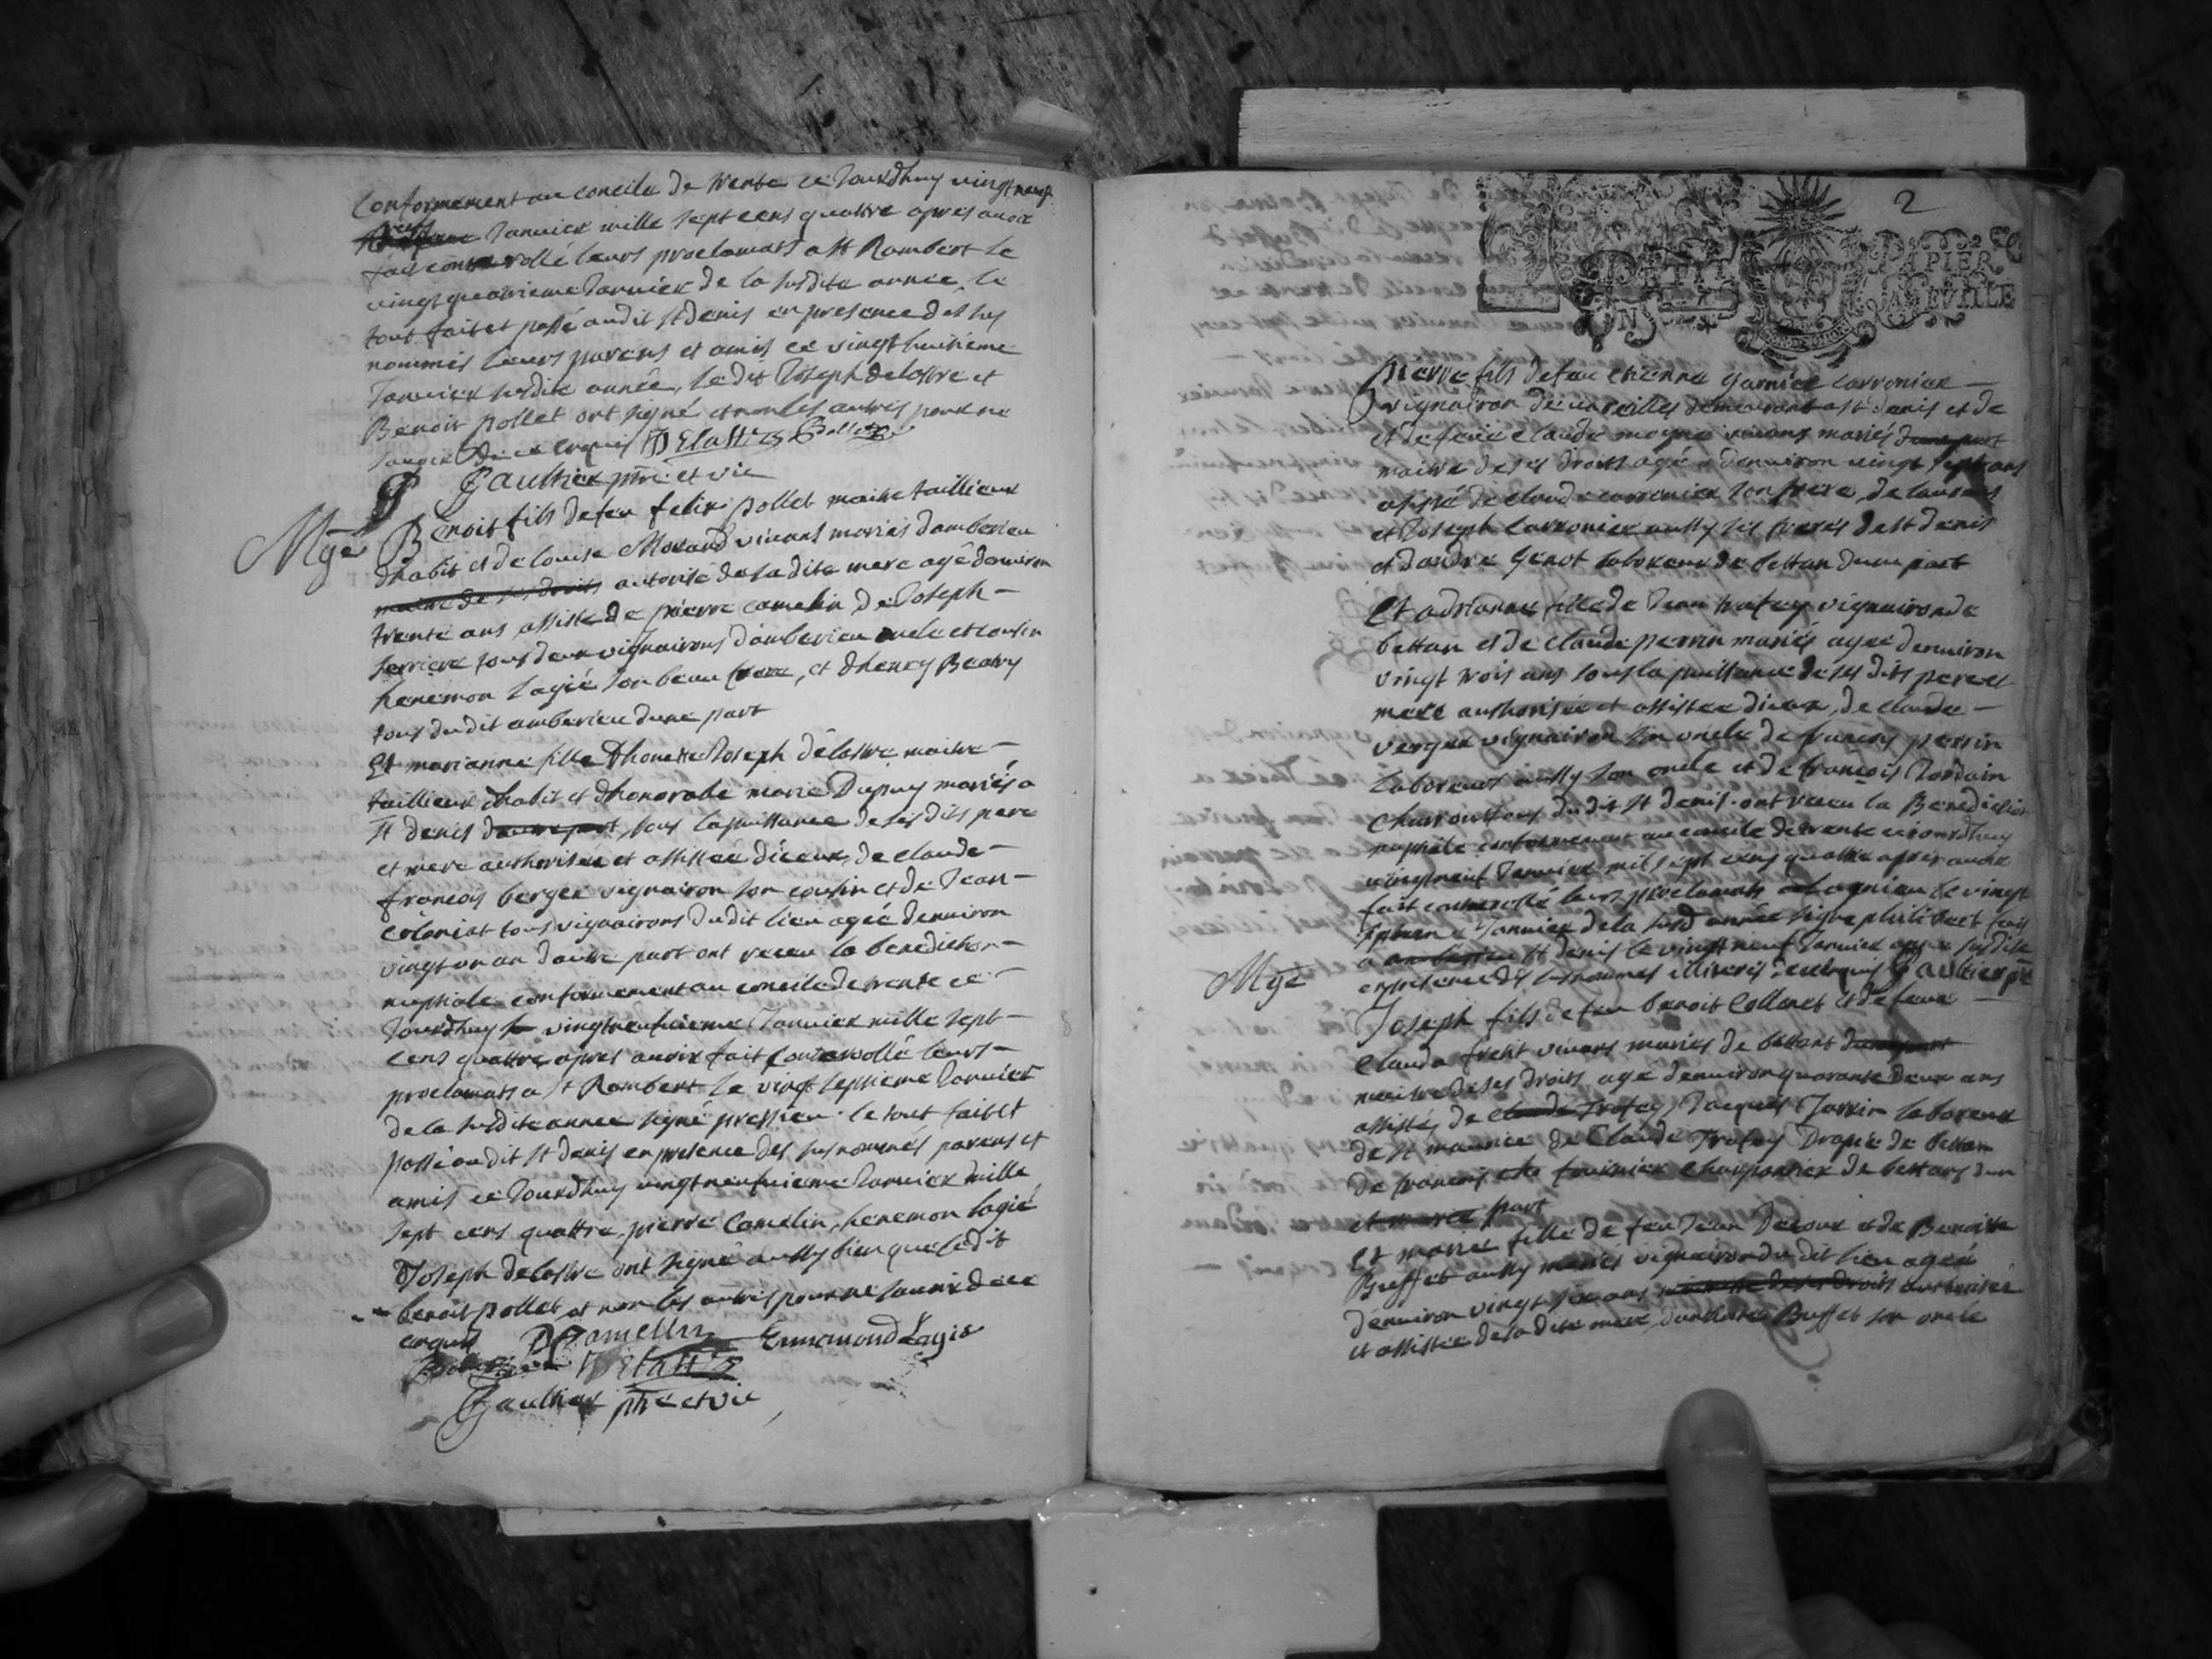 Conformement au concile de trente ce Jourdhuy vingt neuf
Janvier mille sept cens quattre apres avoir
fait controllé leurs proclamats a St Rambert le
vingt quatrieme Janvier de la susdite annee, le
tout fait et passé audit St denis en presence des sus
nommés leurs parens et amis ce vingt huitième
Janvier susdite année, ledit Joseph delastre et
Benoit pollet ont signé et non les autres pour ne
scavoir de ce enquis Delastre Pollet
Gaultier ptre et vic
Mge Benoit fils de feu felix pollet maitre taillieur
dhabit et de louise Morand vivans mariés damberieu
maitre de ses droits autorisé de sa dite mere agé denviron
trente ans assisté de pierre camelin de Joseph
serriere tous deux vignairons damberieu oncle et cousin
henemon Lagié son beau frere, et dhenry Beatry
tous dudit amberieu dune part
Et marianne fille dhonette Joseph delastre maitre
taillieur dhabit et dhonorable marie Dupuy mariés a
St denis dautre part, sous la puissance de ses dits pere
et mere authorisée et assistée diceux, de claude
françois berger vignairon son cousin et de Jean
coloniat tous vignairons dudit lieu agée denviron
vingt un an dautre part ont receu la benediction
nuptiale conformement au concile de trente ce
Jourdhuy vingtneufvieme Janvier mille sept
cens quattre apres avoir fait controllé leurs
proclamats a St Rambert le vingt septieme Janvier
de la susdite annee signé pressieu. le tout fait et
passé audit St denis en presence des susnommés parens et
amis ce Jourdhuy vingtneufvieme Janvier mille
sept cens quattre, pierre Camelin, henemon lagié
Joseph delastre ont signé aussy bien que ledit
benoit pollet et non les autres pour ne scavoir de ce
enquis PCamellin Ennemond Lagie
Delastre
Gaultier ptre et vic
2
PETIT PAPIER
Pierre fils de feu etienne garnier carronier
vignairon de vareilles demeurant a St denis et de
et de feüe claude moyne vivans mariés dune part
maitre de ses droits agé denviron vingt sept ans
assisté de claude carronier son frere, de laurens
et Joseph Carronier aussy ses freres de St denis
et dandre Genot laboreur de bettan dune part
Et adrianne fille de Jean trafay vignairon de
bettan et de claude perrin mariés agée denviron
vingt trois ans sous la puissance de ses dits pere et
mere authorisée et assistée diceux, de claude
verger vignairon son oncle de françois perrin
laboreur aussy son oncle et de françois Jordain
charron tous dudit St denis. ont receu la Benediction
nuptiale conformement au concile de trente ce jourdhuy
vingtneuf Janvier mil sept cens quattre apres avoir
fait controllé leurs proclamats a Lagnieu le vingt
Janvier de la susd année signe philibert fait
a St denis le vingt neuf Janvier annee susdite
en presence des susnommes illiteres de ce enquis Gaultier ptre
Mge
Joseph fils de feu benoit Collonet et de feue
Clauda freht vivans mariés de bettant dune part
maitre de ses droits agé denviron quarante deux ans
assisté, de claude Trafay Jacques Jarrin laboreur
de St maurice de Claude Trafay Drapie de bettan
de françois fournier charpantier de bettans dun
part
Et marie fille de feu Jean Deroux et de Benoite
Buffet aussy mariés vignairon dudit lieu agée
denviron vingt six ans maitresse de ses droits authorisée
et assistée de sa dite mere, Buffet son oncle